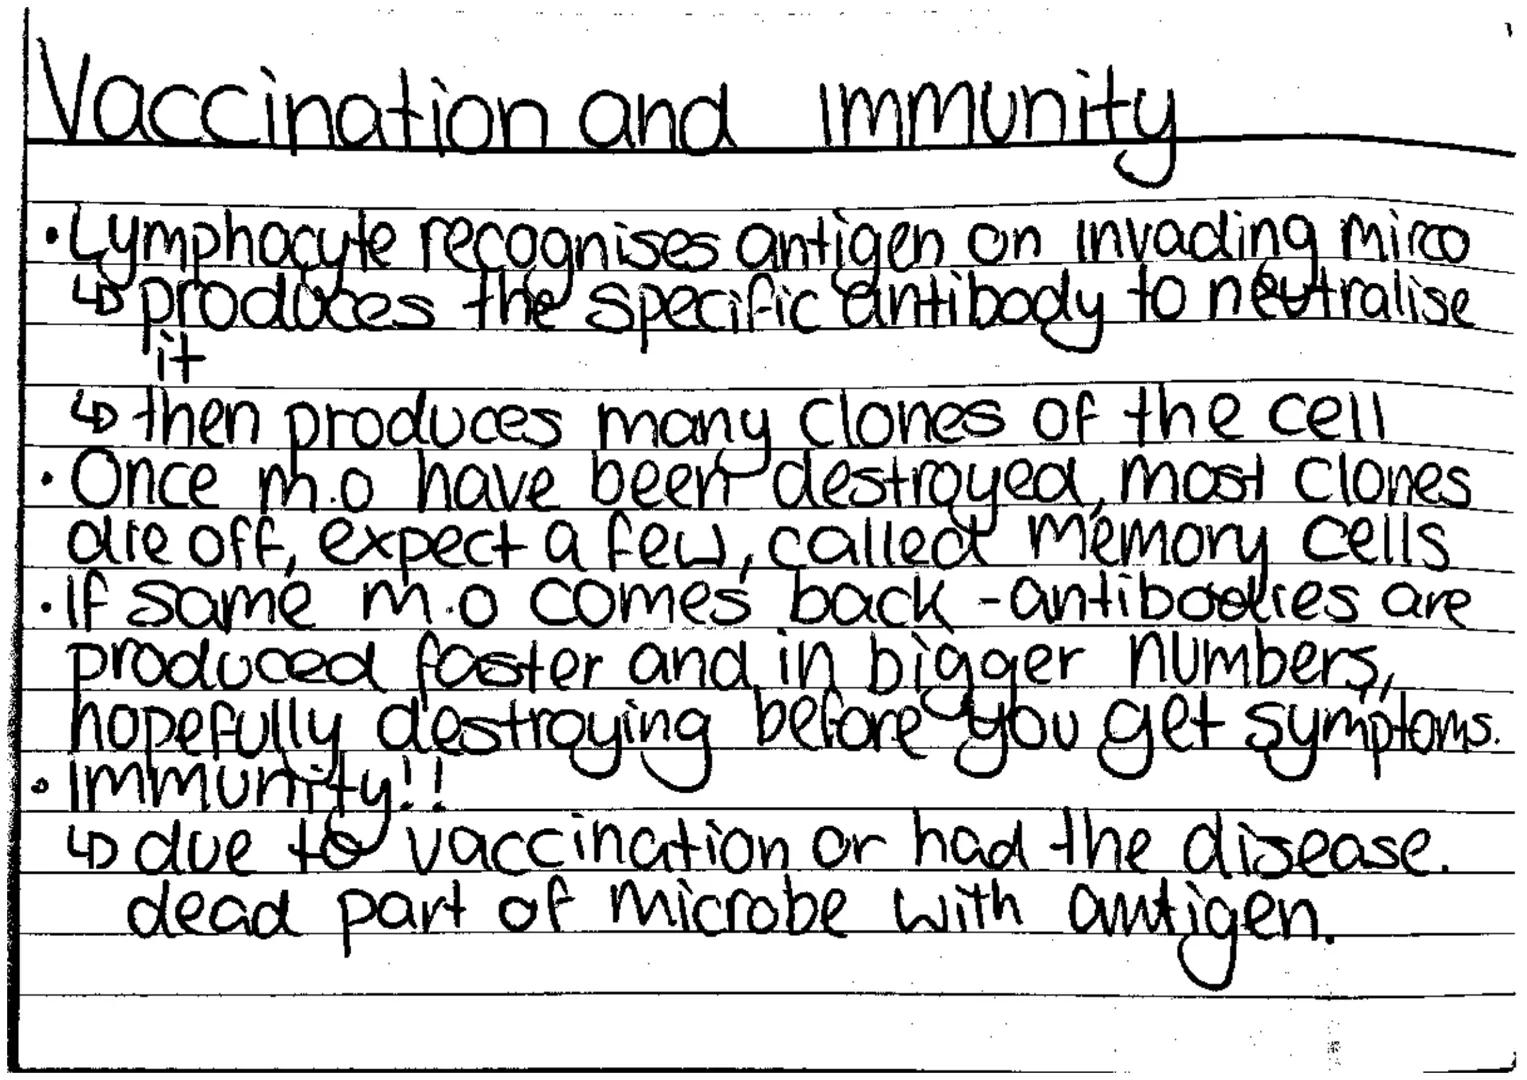 Vaccination and Immunity
• Lymphocyte recognises antigen on invading mirco
↳ produces the specific antibody to neutralise
it
↳ then produces many clones of the cell
• Once m.o have been destroyed, most clones
die off, expect a few, called memory cells
• If same m.o comes back - antibodies are
produced faster and in bigger numbers,
hopefully destroying before you get symptoms.
• Immunity!!
↳ due to vaccination or had the disease.
dead part of microbe with antigen.